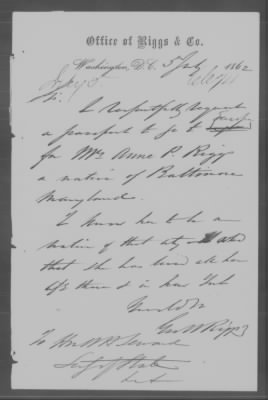 Office of Riggs & Co.
Washington, D.C. 5 July 1862
Sir,
I respectfully request
a passport to go to
for Mrs Anne P. Rigg
a native of Baltimore
Maryland.
I know her to be a
native of that city and
that she has lived all her
life there & in New York
Geo W Riggs
To Hon W H Seward
Secy of State